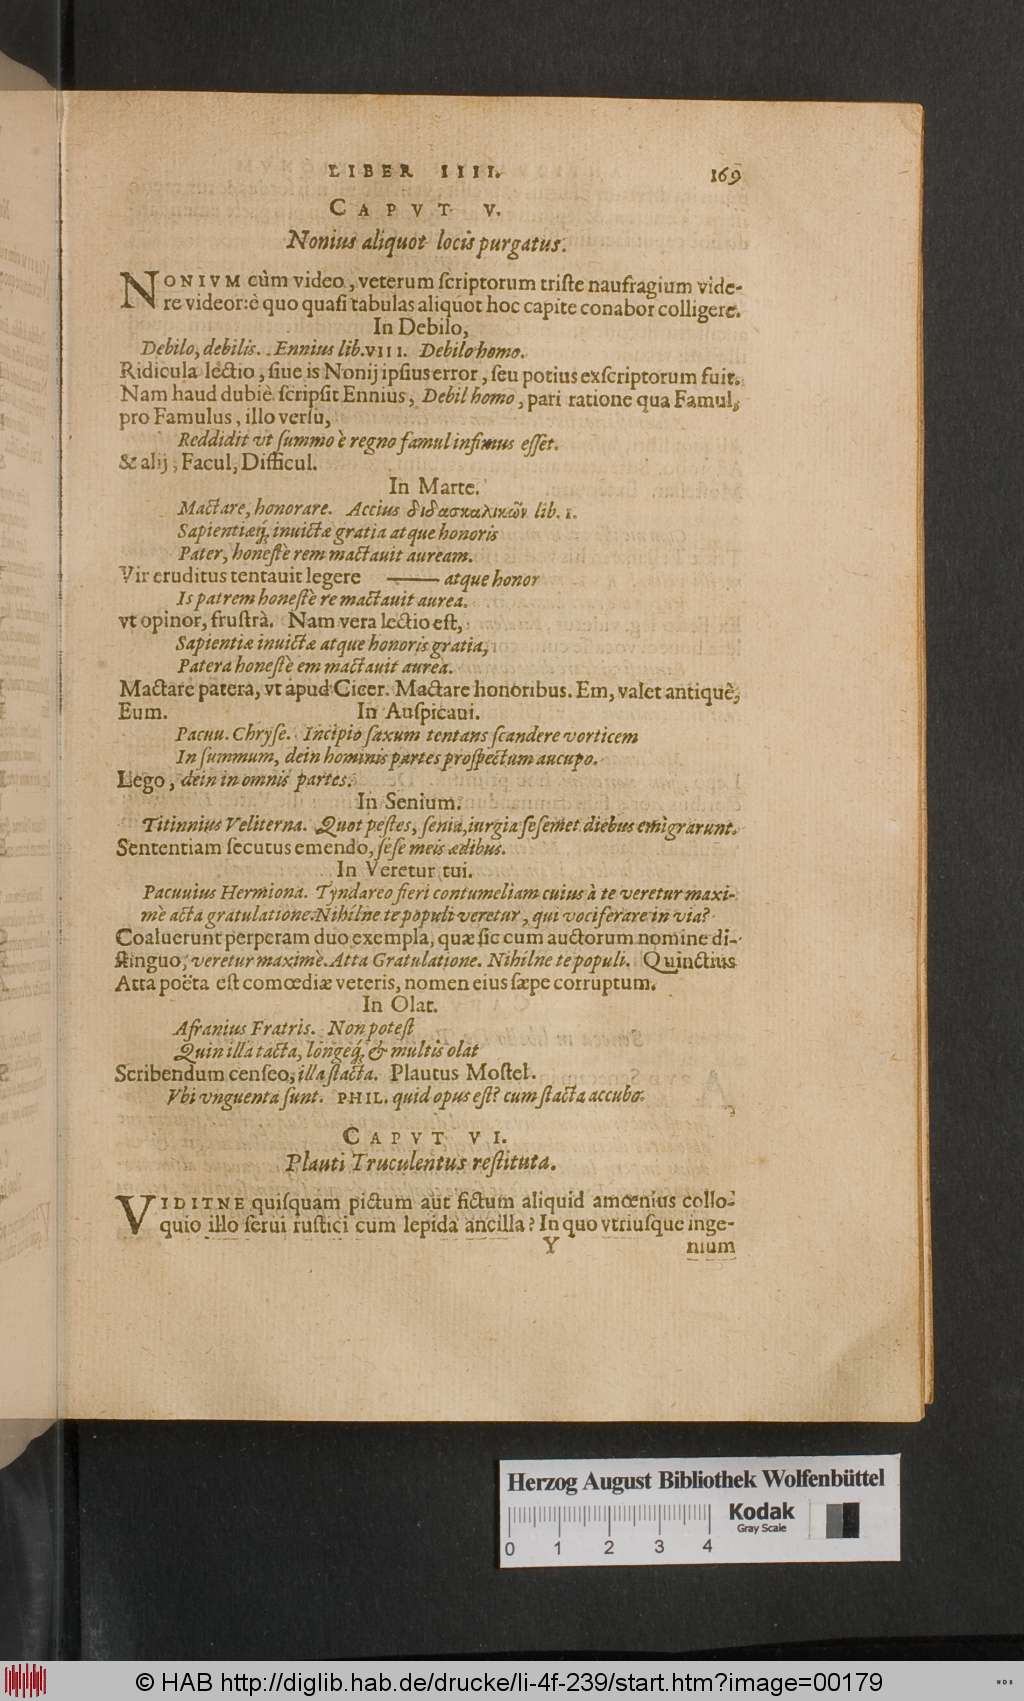 LIBER IIII. 169
CAPVT V.
Nonius aliquot locis purgatus.
NONIVM cùm video, veterum scriptorum triste naufragium vide-
re videor: è quo quasi tabulas aliquot hoc capite conabor colligere.
In Debilo,
Debilo, debilis. Ennius lib. VIII. Debilo homo.
Ridicula lectio, siue is Nonij ipsius error, seu potius exscriptorum fuit.
Nam haud dubiè scripsit Ennius, Debil homo, pari ratione qua Famul,
pro Famulus, illo versu,
Reddidit vt summo è regno famul infimus esset.
& alij, Facul, Difficul.
In Marte.
Mactare, honorare. Accius διδασκαλικῶν lib. 1.
Sapientiæq́; inuictæ gratia atque honoris
Pater, honestè rem mactauit auream.
Vir eruditus tentauit legere —— atque honor
Is patrem honestè re mactauit aurea.
vt opinor, frustrà. Nam vera lectio est,
Sapientiæ inuictæ atque honoris gratia,
Patera honestè em mactauit aurea.
Mactare patera, vt apud Cicer. Mactare honoribus. Em, valet antiquè,
Eum. In Auspicaui.
Pacuu. Chryse. Incipio saxum tentans scandere vorticem
In summum, dein hominis partes prospectum aucupo.
Lego, dein in omnis partes.
In Senium.
Titinnius Veliterna. Quot pestes, senia, iurgia sesemet diebus emigrarunt.
Sententiam secutus emendo, sese meis ædibus.
In Veretur tui.
Pacuuius Hermiona. Tyndareo fieri contumeliam cuius à te veretur maxi-
mè acta gratulatione. Nihilne te populi veretur, qui vociferare in via?
Coaluerunt perperam duo exempla, quæ sic cum auctorum nomine di-
stinguo, veretur maximè. Atta Gratulatione. Nihilne te populi. Quinctius
Atta poëta est comœdiæ veteris, nomen eius sæpe corruptum.
In Olat.
Afranius Fratris. Non potest
Quin illa tacta, longeq́; & multis olat
Scribendum censeo, illa stacta. Plautus Mostel.
Vbi vnguenta sunt. PHIL. quid opus est? cum stacta accubo.
CAPVT VI.
Plauti Truculentus restituta.
VIDITNE quisquam pictum aut fictum aliquid amœnius collo-
quio illo serui rustici cum lepida ancilla? In quo vtriusque inge-
Y nium
Herzog August Bibliothek Wolfenbüttel
Kodak
Gray Scale
0 1 2 3 4
© HAB http://diglib.hab.de/drucke/li-4f-239/start.htm?image=00179